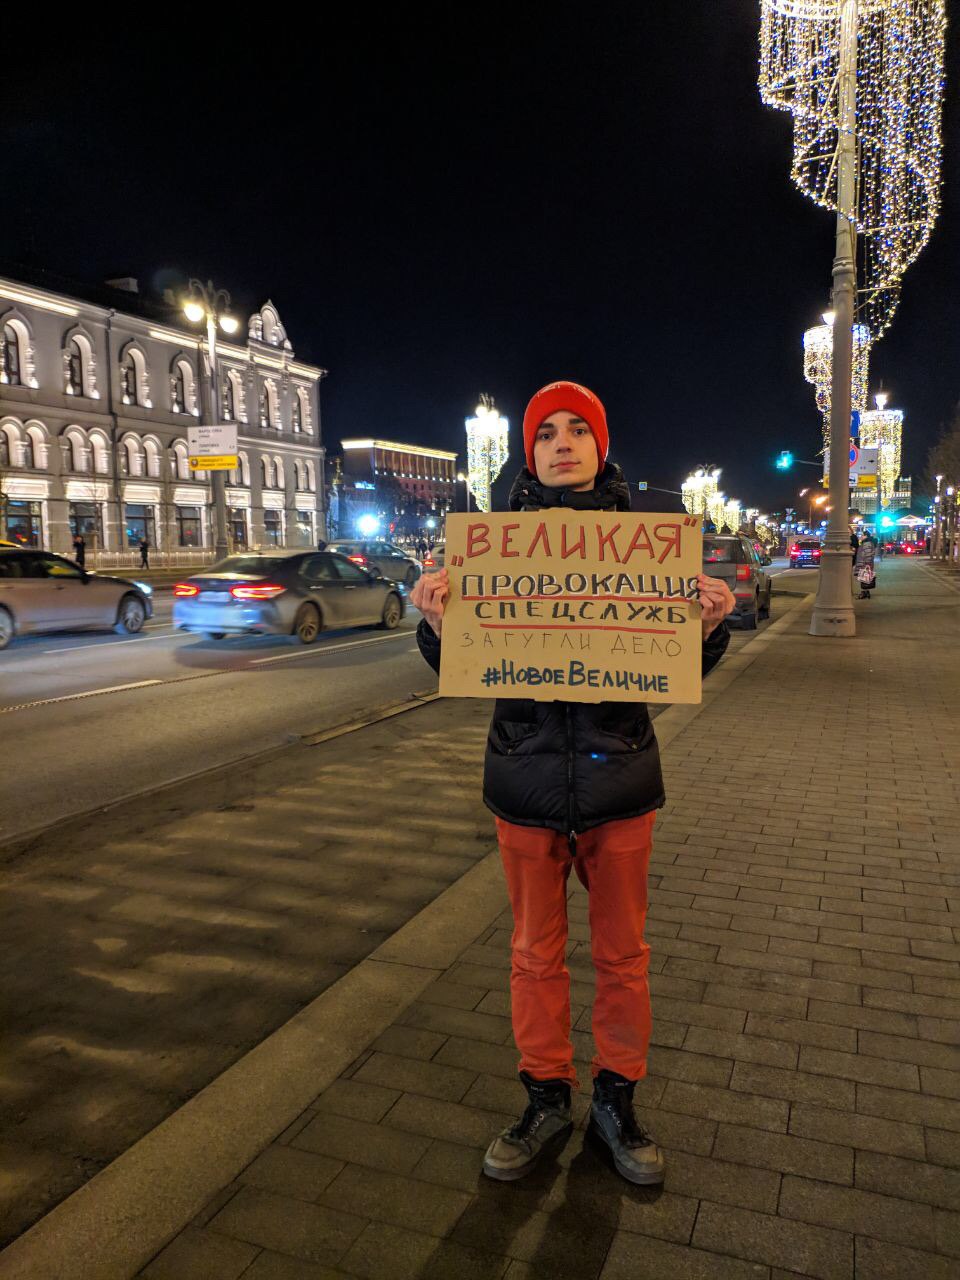 „ВЕЛИКАЯ"
ПРОВОКАЦИЯ
СПЕЦСЛУЖБ
ЗАГУГЛИ ДЕЛО
#НОВОЕВЕЛИЧИЕ